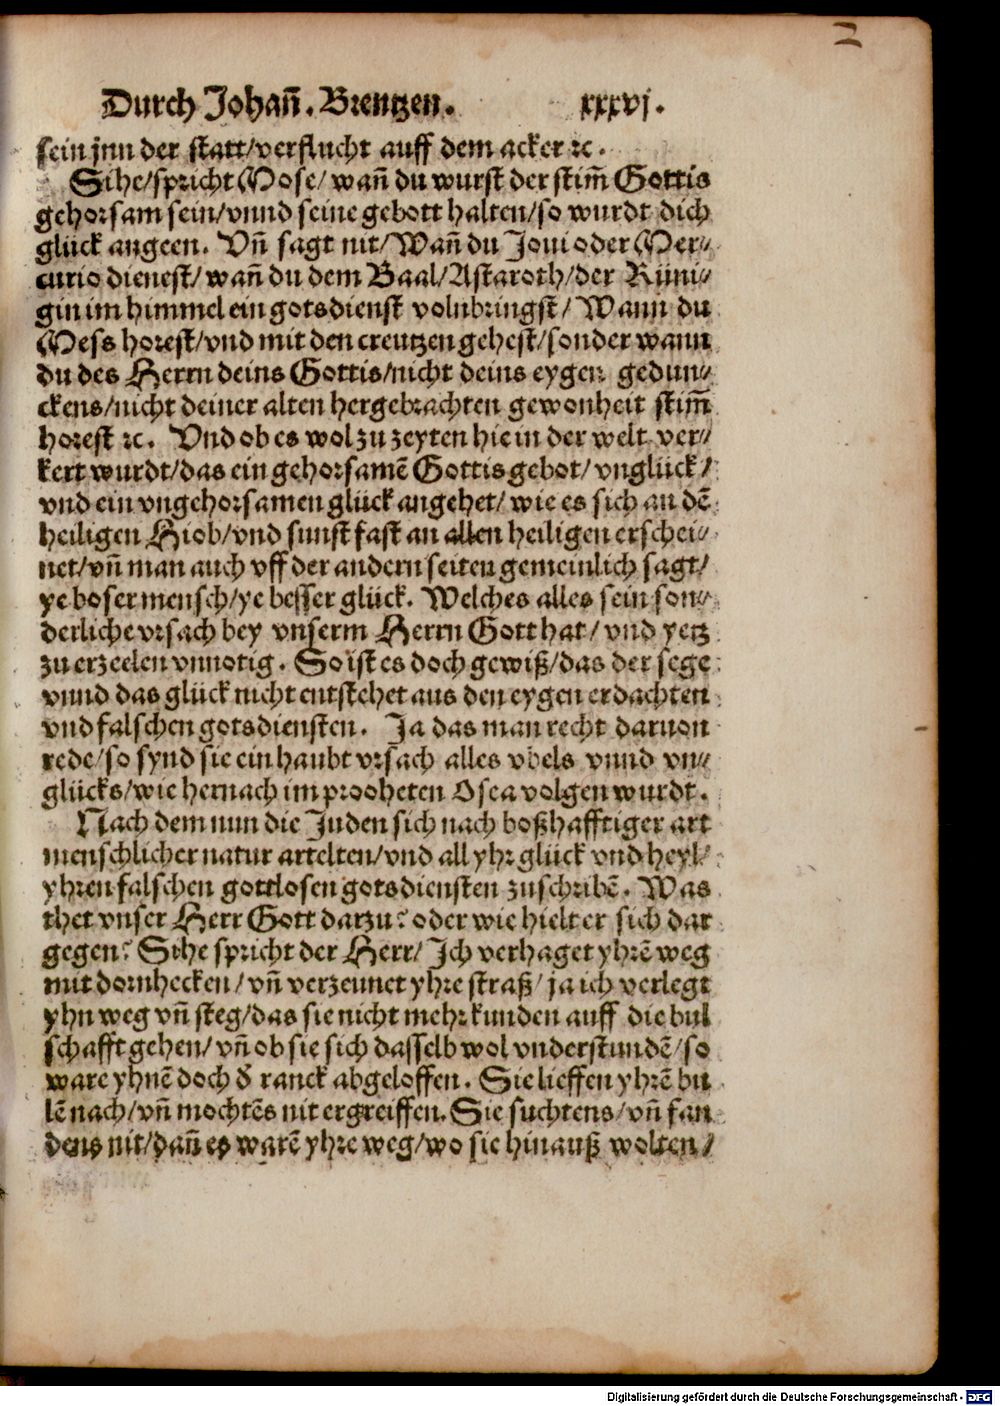 Durch Johañ. Brentzen. xxxvj.
sein jnn der statt/verflucht auff dem acker ꝛc.
Sihe/spricht Mose/ wañ du wurst der stim̃ Gottis
gehorsam sein/vnnd seine gebott halten/so wurdt dich
glück angeen. Vñ sagt nit/Wañ du Joui oder Mer⸗
curio dienest/ wañ du dem Baal/Astaroth/der Küni⸗
gin im himmel ein gotsdienst volnbringst/ Wann du
Mess horest/vnd mit den creutzen gehest/sonder wann
du des Herrn deins Gottis/nicht deins eygen gedun⸗
ckens/nicht deiner alten hergebrachten gewonheit stim̃
horest ꝛc. Vnd ob es wol zu zeyten hie in der welt ver⸗
kert wurdt/das ein gehorsamē Gottis gebot/vnglück/
vnd ein vngehorsamen glück angehet/ wie es sich an dē
heiligen Hiob/vnd sunst fast an allen heiligen erschei⸗
net/vñ man auch vff der andern seiten gemeinlich sagt/
ye boser mensch/ye besser glück. Welches alles sein son⸗
derliche vrsach bey vnserm Herrn Gott hat/ vnd yetz
zu erzeelen vnnotig. So ist es doch gewiß/das der sege
vnnd das glück nicht entstehet aus den eygen erdachten
vnd falschen gotsdiensten. Ja das man recht daruon
rede/so synd sie ein haubt vrsach alles vbels vnnd vn⸗
glücks/wie hernach im propheten Osea volgen wurdt.
Nach dem nun die Juden sich nach boßhafftiger art
menschlicher natur artelten/vnd all yhr glück vnd heyl/
yhren falschen gottlosen gotsdiensten zuschribē. Was
thet vnser Herr Gott darzu? oder wie hielt er sich dar
gegen? Sihe spricht der Herr/ Ich verhaget yhrē weg
mit dornhecken/ vñ verzeunet yhre straß/ ja ich verlegt
yhn weg vñ steg/das sie nicht mehr kunden auff die bul
schafft gehen/ vñ ob sie sich dasselb wol vnderstundē/so
ware yhnē doch δ ranck abgeloffen. Sie lieffen yhrē bu
lē nach/vñ mochtēs nit ergreiffen. Sie suchtens/vñ fan
dens nit/dañ es warē yhre weg/wo sie hinauß wolten/
Digitalisierung gefördert durch die Deutsche Forschungsgemeinschaft - DFG